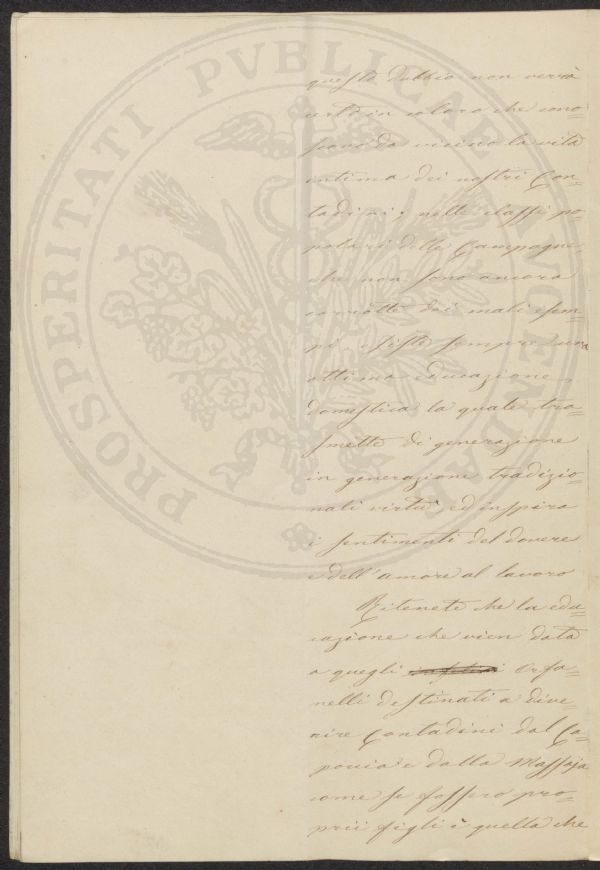 PROSPERITATI PVBLICAE AVGENDAE
questo dubbio non verrà
certo in coloro che cono=
scono da vicino la vita
intima dei nostri Con=
tadini; nelle classi po=
polari delle Campagne,
che non sono ancora
corrotte dai mali esem=
pi esiste sempre una
ottima educazione
domestica la quale tra=
smette di generazione
in generazione tradizio=
nali virtù, ed inspira
i sentimenti del dovere
e dell'amore al lavoro
Ritenete che la edu=
cazione che vien data
a quegli Orfa=
nelli destinati a dive=
nire Contadini dal Ca=
poccia e dalla Massaja
come se fossero pro=
prii figli è quella che